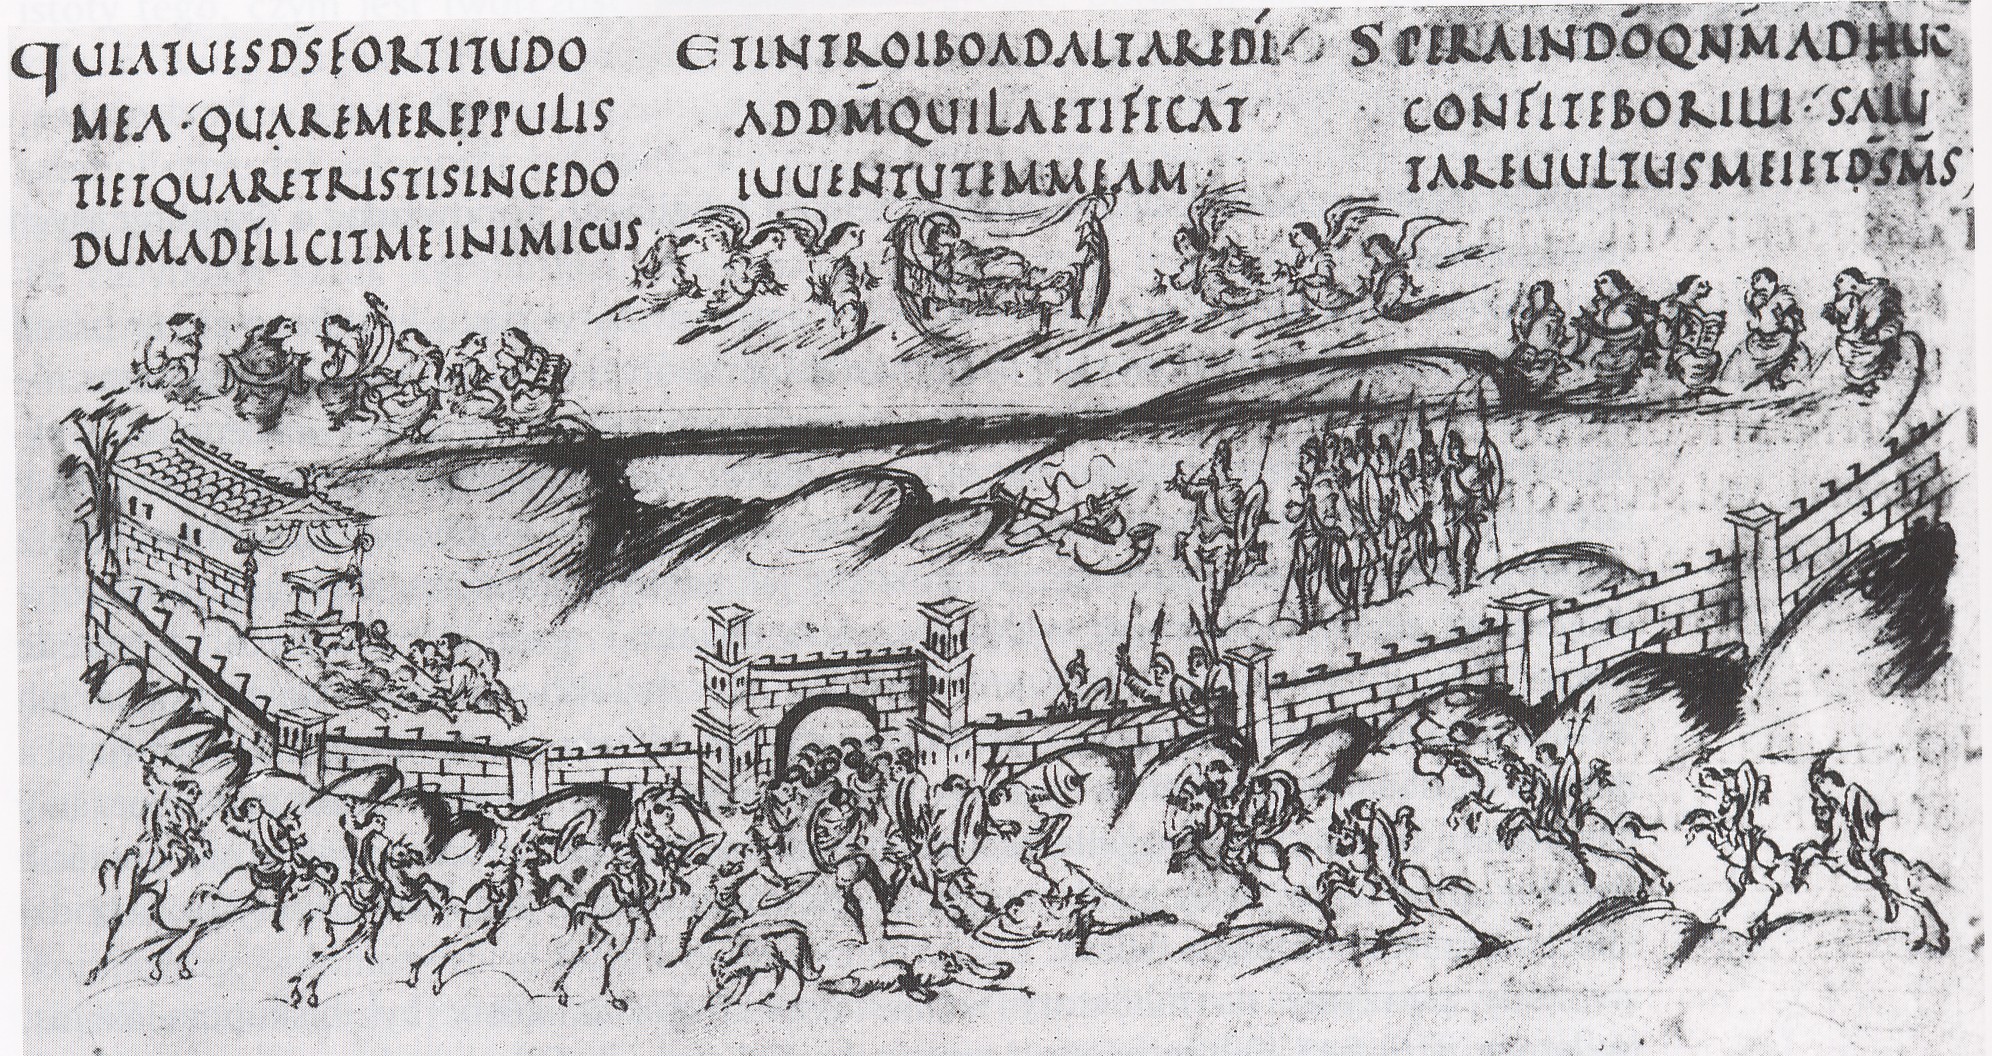 QUIATUESDS̄FORTITUDO
MEA·QUAREMEREPPULIS
TIETQUARETRISTISINCEDO
DUMADFLICITMEINIMICUS
ETINTROIBOADALTAREDĪ
ADDM̄QUILAETIFICAT
IUUENTUTEMMEAM·
SPERAINDŌQNM̄ADHUC
CONFITEBORILLI·SALU
TAREUULTUSMEIETDS̄MS̄